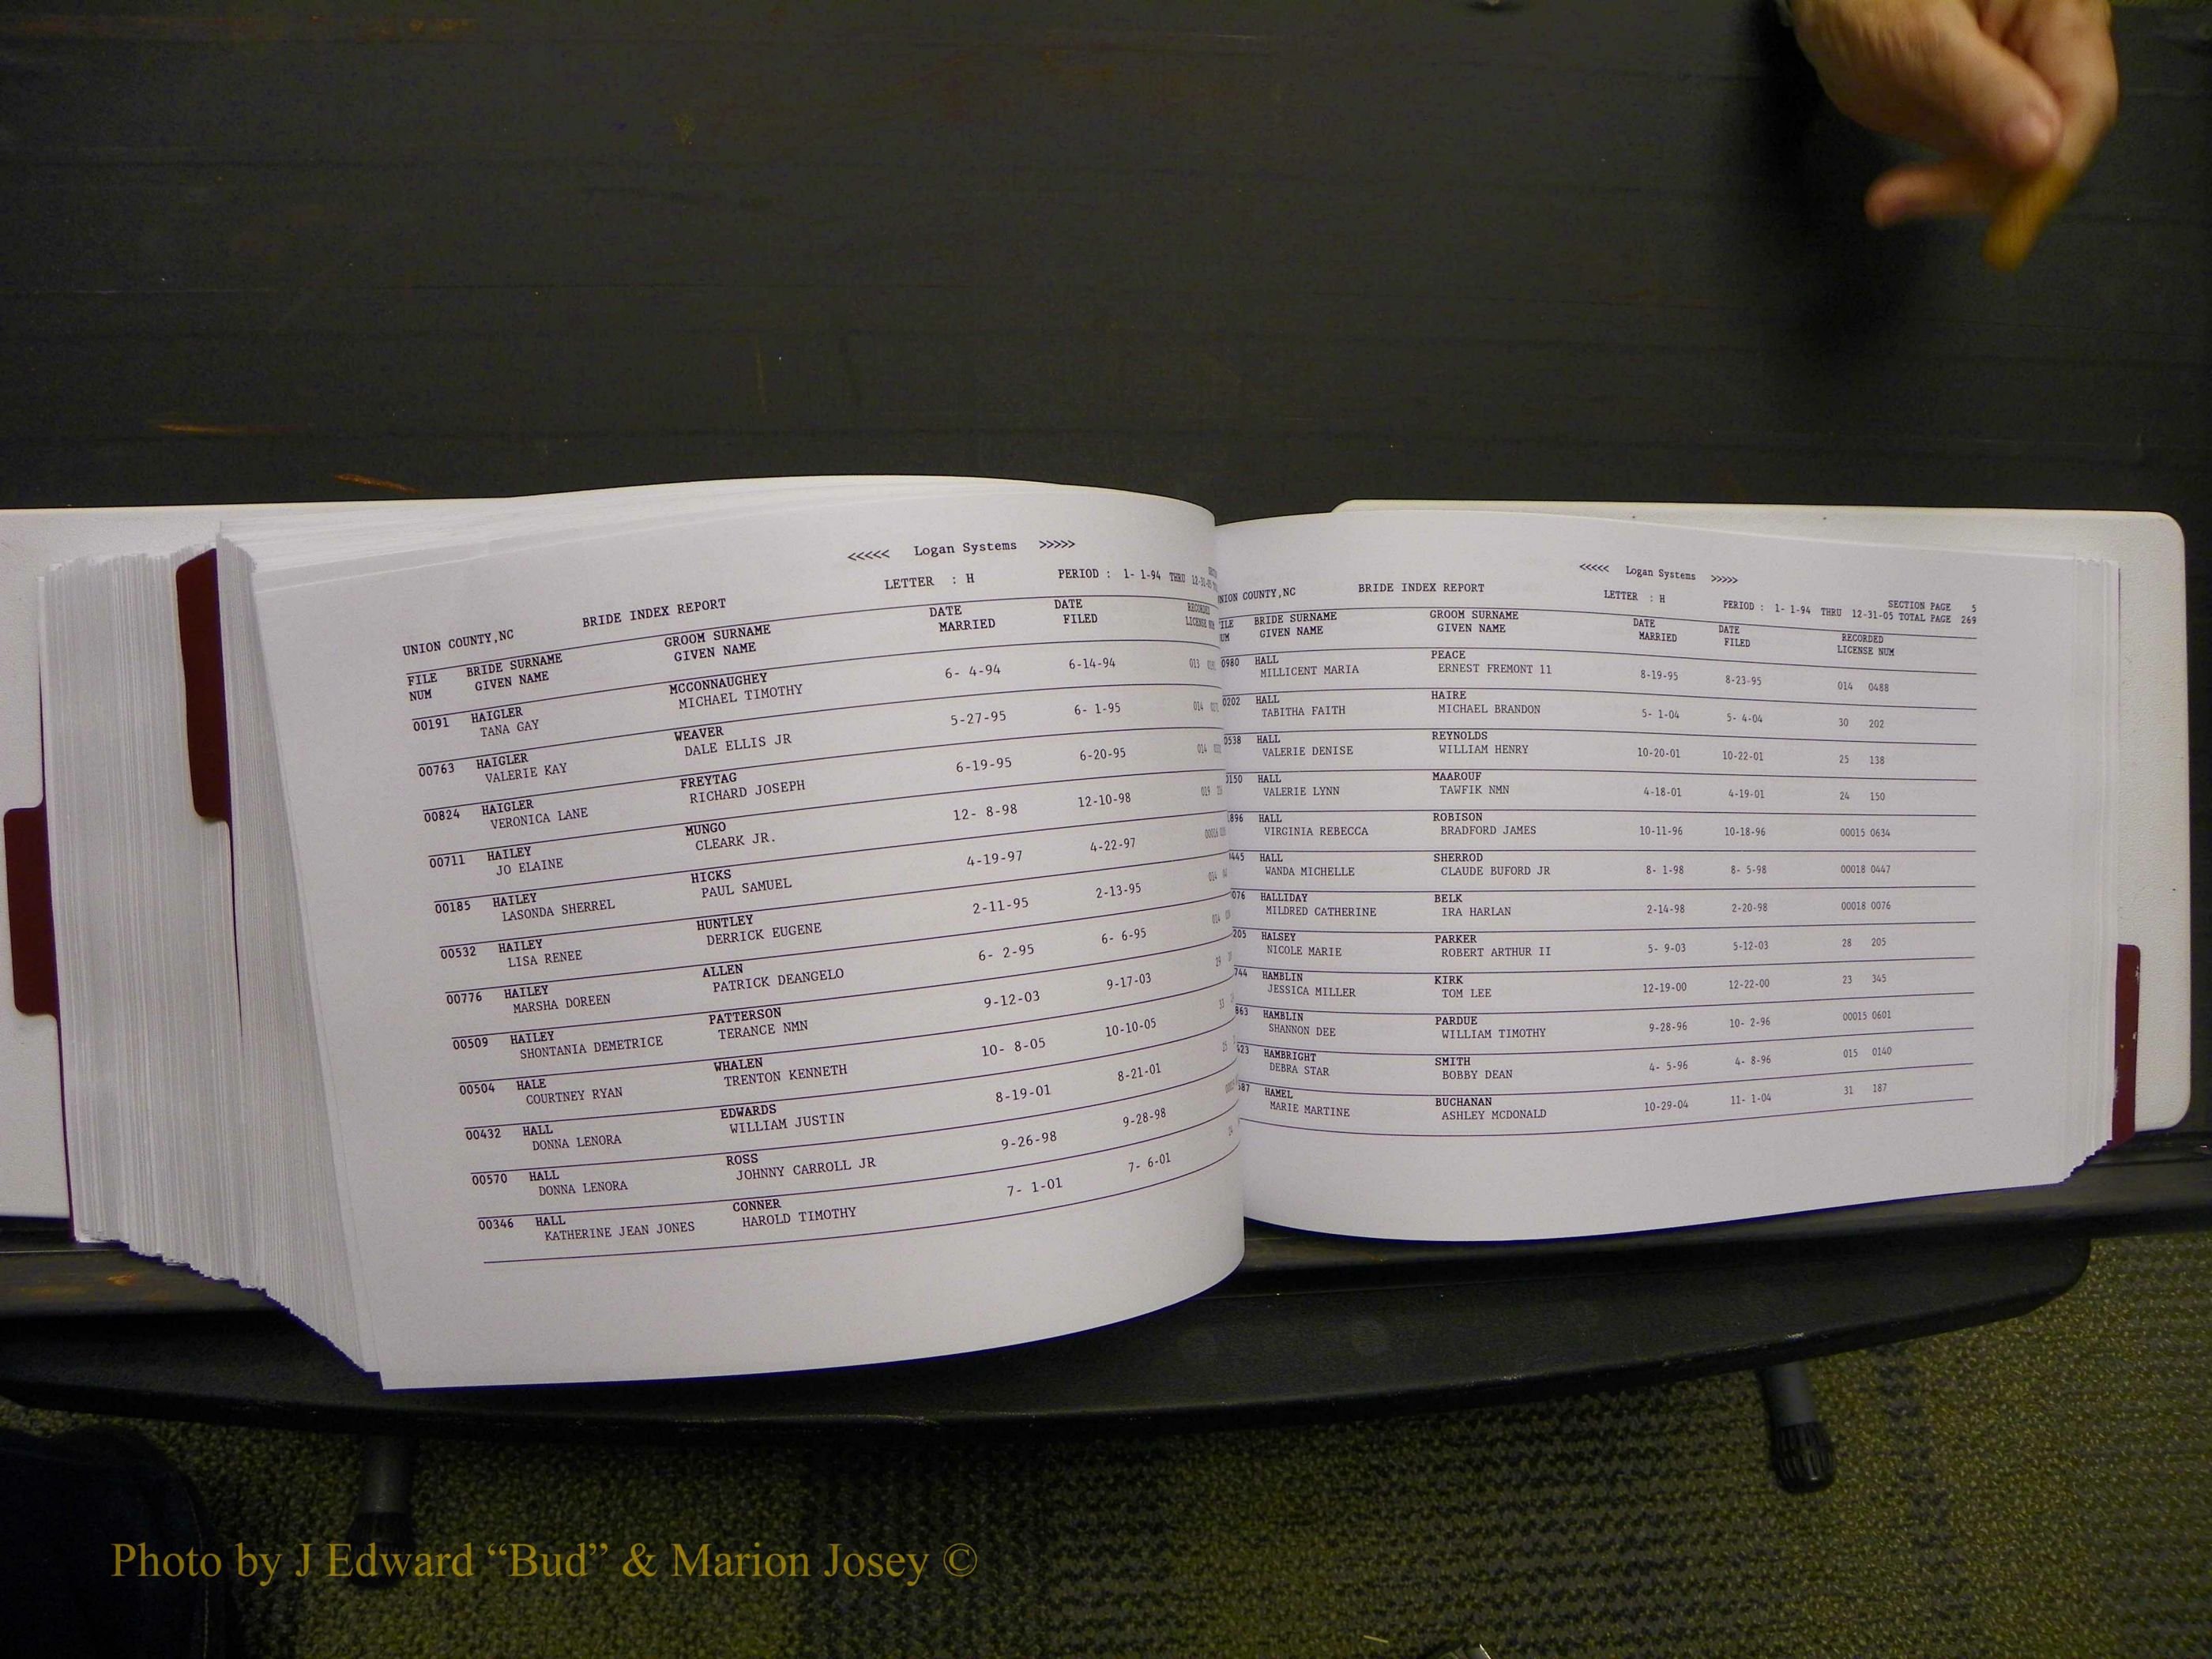 <<<<< Logan Systems >>>>>
UNION COUNTY,NC BRIDE INDEX REPORT LETTER : H PERIOD : 1- 1-94 THRU
FILE BRIDE SURNAME GROOM SURNAME DATE DATE RECORDED
NUM GIVEN NAME GIVEN NAME MARRIED FILED LICENSE
00191 HAIGLER MCCONNAUGHEY 6- 4-94 6-14-94 013
TANA GAY MICHAEL TIMOTHY
00763 HAIGLER WEAVER 5-27-95 6- 1-95 014
VALERIE KAY DALE ELLIS JR
00824 HAIGLER FREYTAG 6-19-95 6-20-95 014
VERONICA LANE RICHARD JOSEPH
00711 HAILEY MUNGO 12- 8-98 12-10-98 019
JO ELAINE CLEARK JR.
00185 HAILEY HICKS 4-19-97 4-22-97
LASONDA SHERREL PAUL SAMUEL
00532 HAILEY HUNTLEY 2-11-95 2-13-95 014
LISA RENEE DERRICK EUGENE
00776 HAILEY ALLEN 6- 2-95 6- 6-95 014
MARSHA DOREEN PATRICK DEANGELO
00509 HAILEY PATTERSON 9-12-03 9-17-03
SHONTANIA DEMETRICE TERANCE NMN
00504 HALE WHALEN 10- 8-05 10-10-05
COURTNEY RYAN TRENTON KENNETH
00432 HALL EDWARDS 8-19-01 8-21-01
DONNA LENORA WILLIAM JUSTIN
00570 HALL ROSS 9-26-98 9-28-98
DONNA LENORA JOHNNY CARROLL JR
00346 HALL CONNER 7- 1-01 7- 6-01
KATHERINE JEAN JONES HAROLD TIMOTHY
<<<<< Logan Systems >>>>>
SECTION PAGE 5
NION COUNTY,NC BRIDE INDEX REPORT LETTER : H PERIOD : 1- 1-94 THRU 12-31-05 TOTAL PAGE 269
ILE BRIDE SURNAME GROOM SURNAME DATE DATE RECORDED
UM GIVEN NAME GIVEN NAME MARRIED FILED LICENSE NUM
0980 HALL PEACE 8-19-95 8-23-95 014 0488
MILLICENT MARIA ERNEST FREMONT 11
0202 HALL HAIRE 5- 1-04 5- 4-04 30 202
TABITHA FAITH MICHAEL BRANDON
0538 HALL REYNOLDS 10-20-01 10-22-01 25 138
VALERIE DENISE WILLIAM HENRY
0150 HALL MAAROUF 4-18-01 4-19-01 24 150
VALERIE LYNN TAWFIK NMN
896 HALL ROBISON 10-11-96 10-18-96 00015 0634
VIRGINIA REBECCA BRADFORD JAMES
445 HALL SHERROD 8- 1-98 8- 5-98 00018 0447
WANDA MICHELLE CLAUDE BUFORD JR
076 HALLIDAY BELK 2-14-98 2-20-98 00018 0076
MILDRED CATHERINE IRA HARLAN
205 HALSEY PARKER 5- 9-03 5-12-03 28 205
NICOLE MARIE ROBERT ARTHUR II
744 HAMBLIN KIRK 12-19-00 12-22-00 23 345
JESSICA MILLER TOM LEE
863 HAMBLIN PARDUE 9-28-96 10- 2-96 00015 0601
SHANNON DEE WILLIAM TIMOTHY
423 HAMBRIGHT SMITH 4- 5-96 4- 8-96 015 0140
DEBRA STAR BOBBY DEAN
87 HAMEL BUCHANAN 10-29-04 11- 1-04 31 187
MARIE MARTINE ASHLEY MCDONALD
Photo by J Edward “Bud” & Marion Josey ©